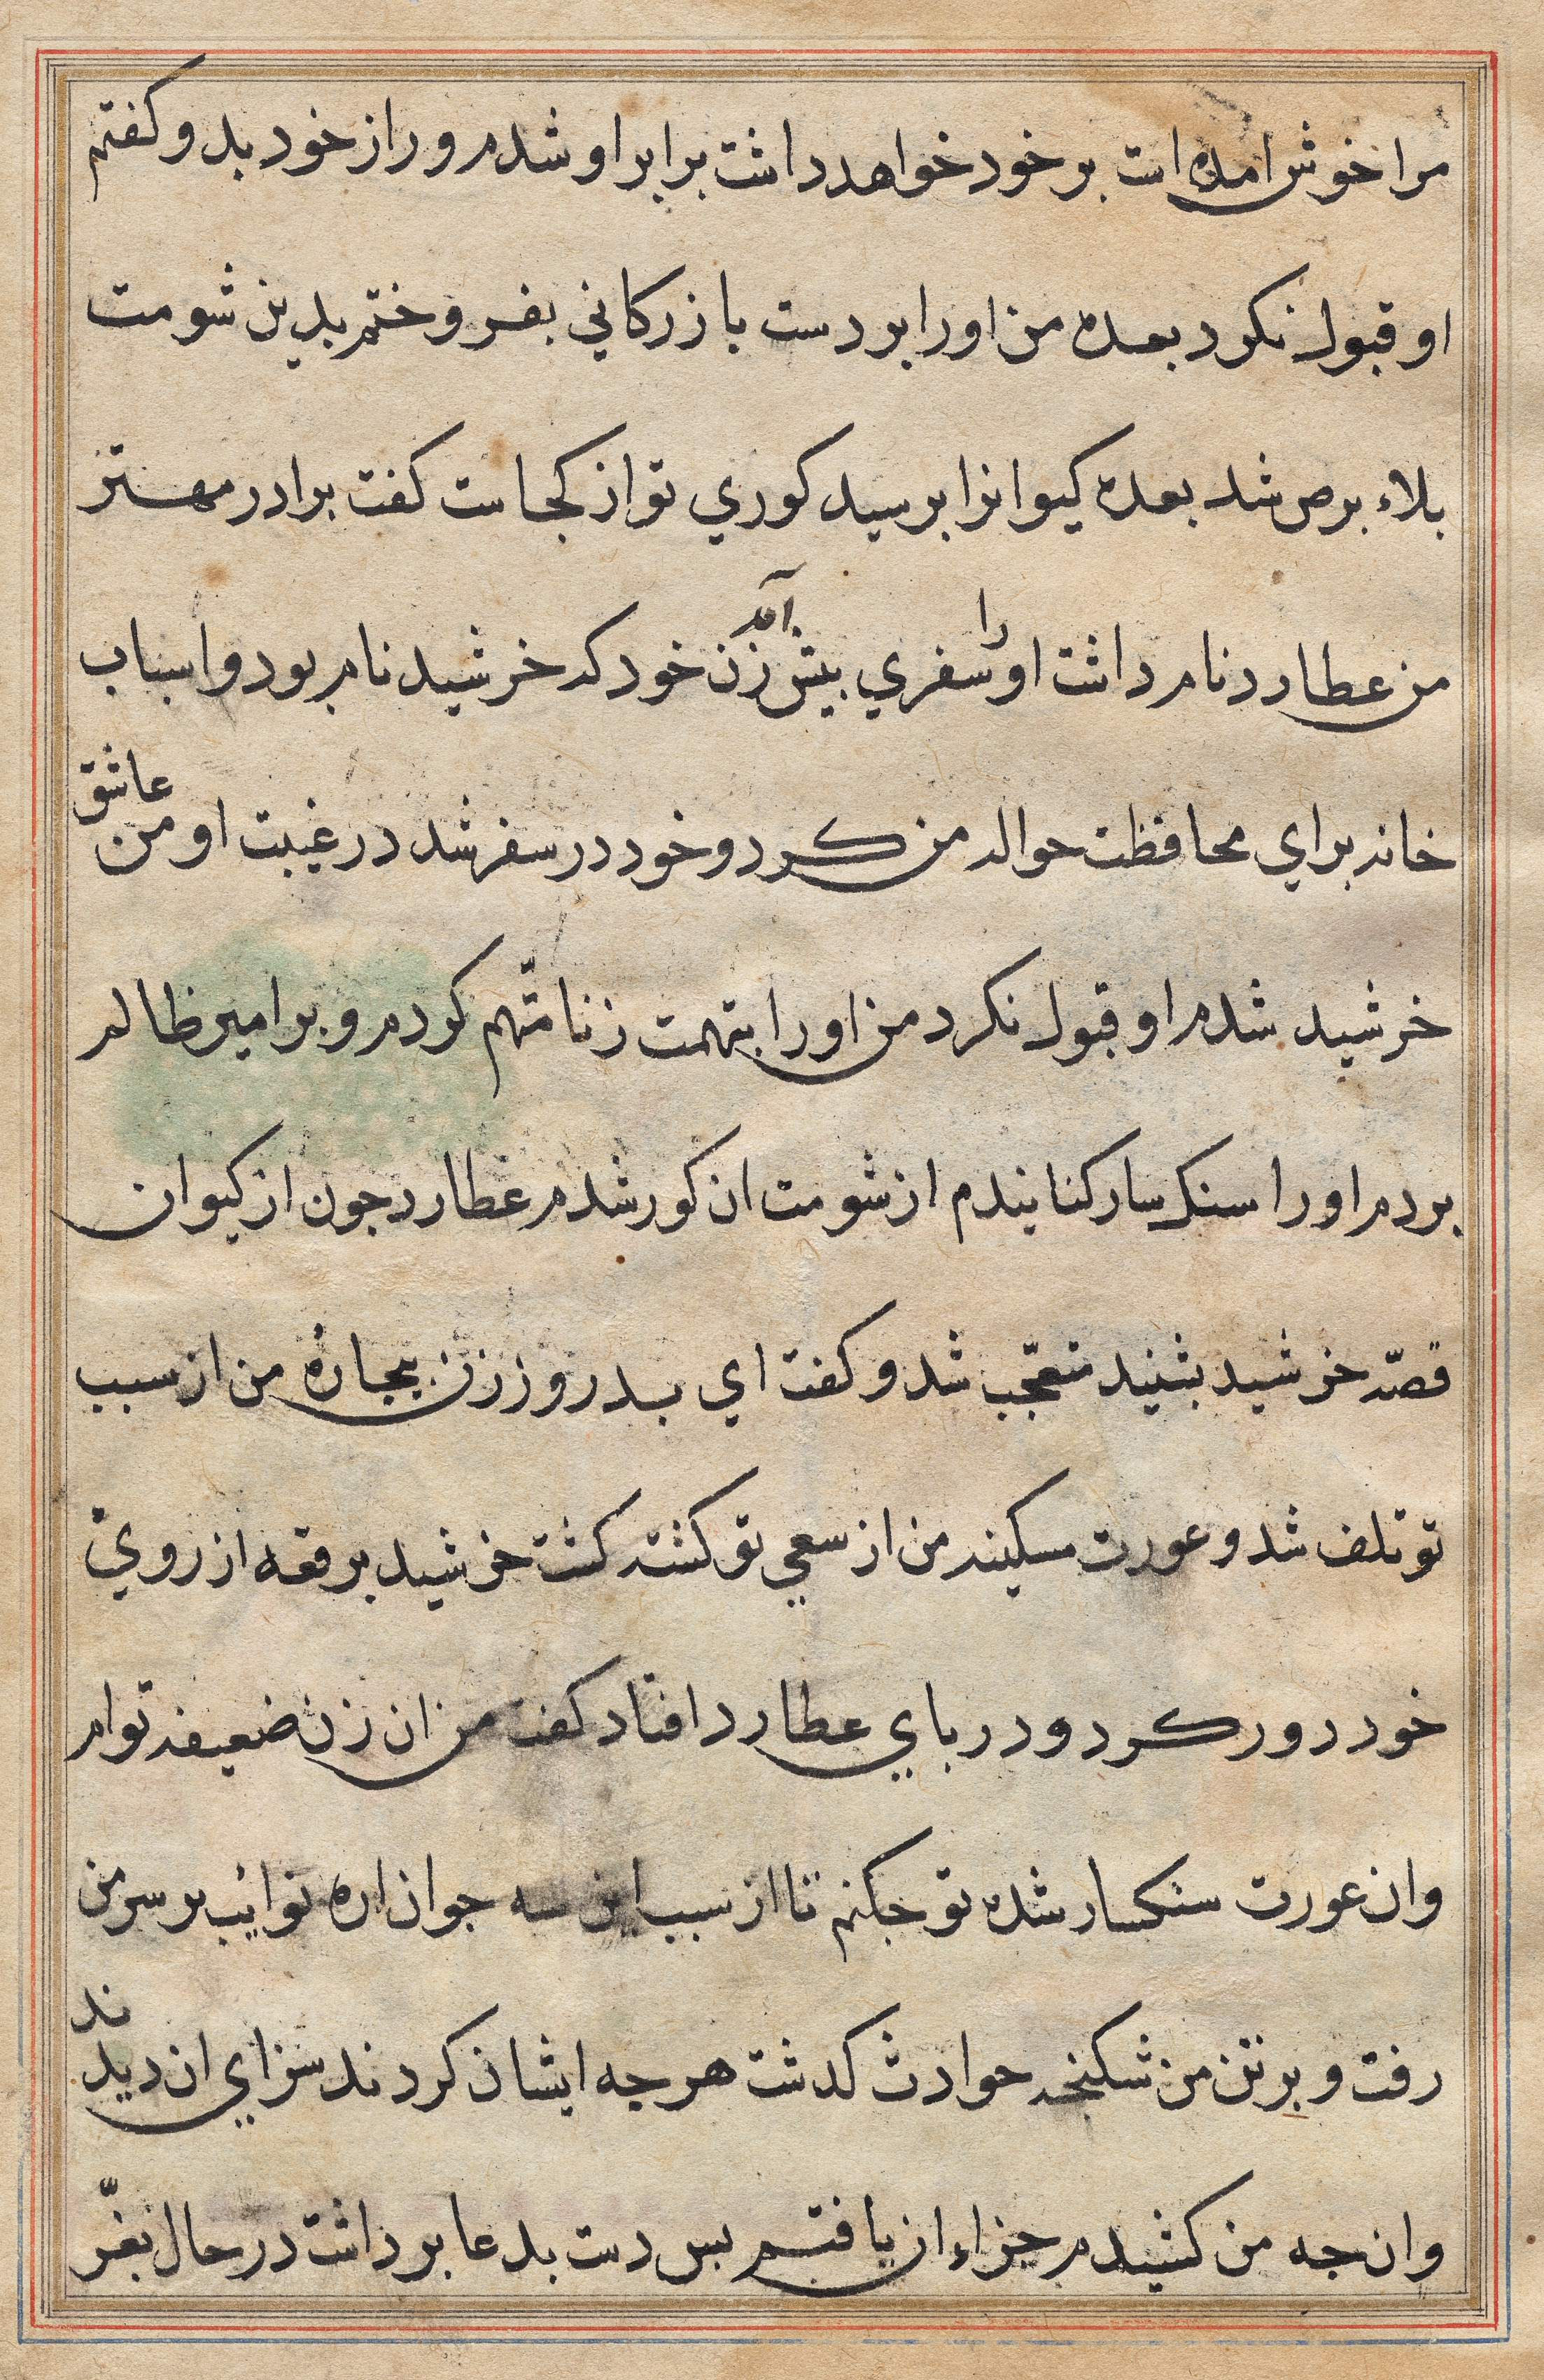 مرا خوش امده است بر خود خواهد داشت برابر او شدم و راز خود بدو کفتم
او قبول نکرد بعده من او را بر دست بازرکاني بفروختم بدین شومت
بلاء برص شد بعده کیوانرا برسید کوري تو از کجاست کفت برادر مهتر
من عطارد نام داشت او را سفري بیش آمد زن خود که خرشید نام بود و اسباب
خانه براي محافظت حواله من کرد و خود در سفر شد در غیبت او من عاشق
خرشید شدم او قبول نکرد من او را بتهمت زنا متّهم کردم و بر امیر ظالم
بردم او را سنک سار کنانیدم از شومت ان کور شدم عطارد جون از کیوان
قصّه خرشید بشنید متعجّب شد و کفت اي بدروز زن بیجارهٔ من از سبب
تو تلف شد و عورت مسکینه من از سعي تو کشته کشت خرشید برقعه از روي
خود دور کرد و در باي عطارد افتاد کفت من ان زن ضعیفه توام
و ان عورت سنکسار شده تو جکنم تا از سبب این سه جوان اره نوایب بر سر من
رفت و بر تن من شکنجه حوادث کدشت هر جه ایشان کردند سزاي ان دیدند
و انجه من کشیدم جزاء ان یافتم بس دست بدعا برداشت در حال بفرّ